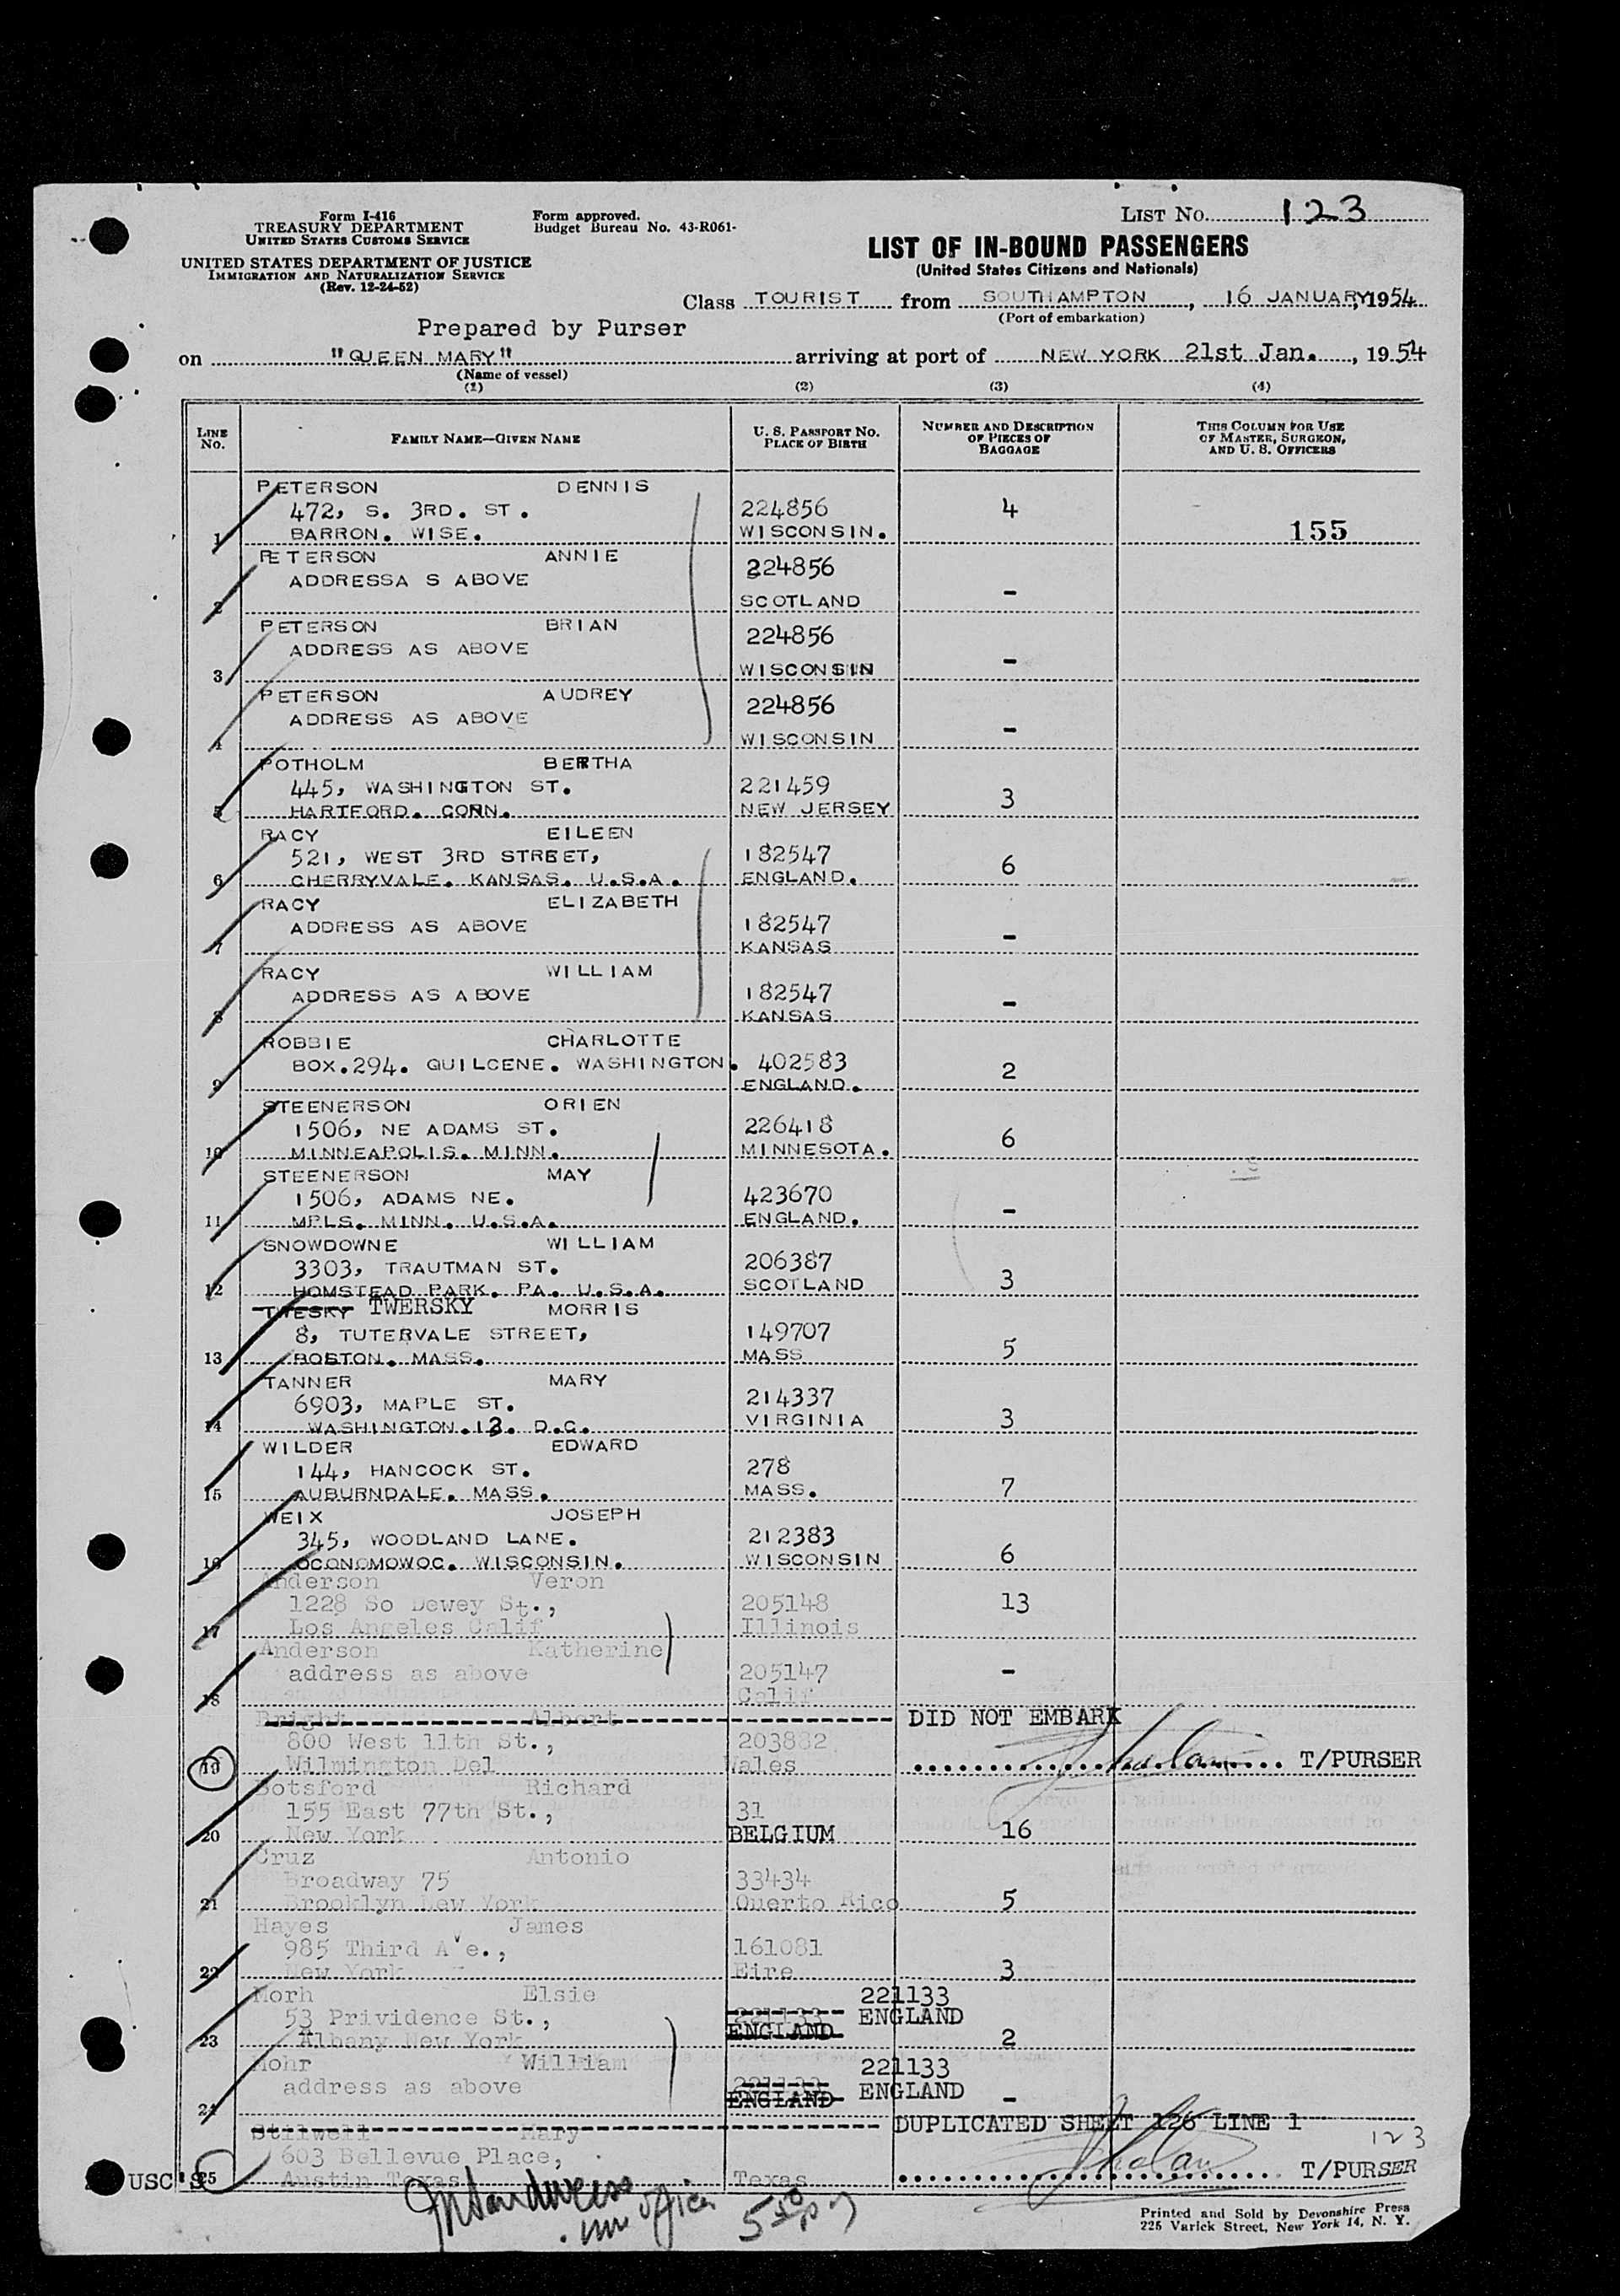 Form I-416
TREASURY DEPARTMENT
UNITED STATES CUSTOMS SERVICE
UNITED STATES DEPARTMENT OF JUSTICE
IMMIGRATION AND NATURALIZATION SERVICE
(Rev. 12-24-52)
Form approved.
Budget Bureau No. 43-R061-
LIST NO. 123
LIST OF IN-BOUND PASSENGERS
(United States Citizens and Nationals)
Class TOURIST from SOUTHAMPTON, 16 JANUARY, 1954
(Port of embarkation)
Prepared by Purser
on "QUEEN MARY" arriving at port of NEW YORK 21st Jan., 1954
(Name of vessel)
(1) (2) (3) (4)
LINE NO. FAMILY NAME—GIVEN NAME U. S. PASSPORT NO. PLACE OF BIRTH NUMBER AND DESCRIPTION OF PIECES OF BAGGAGE THIS COLUMN FOR USE OF MASTER, SURGEON, AND U. S. OFFICERS
PETERSON DENNIS
472, S. 3RD. ST. 224856 4
1 BARRON. WISE. WISCONSIN. 155
PETERSON ANNIE
ADDRESSA S ABOVE 224856
2 SCOTLAND -
PETERSON BRIAN 224856
ADDRESS AS ABOVE
3 WISCONSIN -
PETERSON AUDREY 224856
ADDRESS AS ABOVE
4 WISCONSIN -
POTHOLM BERTHA
445, WASHINGTON ST. 221459
5 HARTFORD. CONN. NEW JERSEY 3
RACY EILEEN
521, WEST 3RD STREET, 182547
6 CHERRYVALE. KANSAS. U.S.A. ENGLAND. 6
RACY ELIZABETH
ADDRESS AS ABOVE 182547
7 KANSAS -
RACY WILLIAM
ADDRESS AS A BOVE 182547
8 KANSAS -
ROBBIE CHARLOTTE
BOX.294. QUILCENE. WASHINGTON. 402583
9 ENGLAND. 2
STEENERSON ORIEN
1506, NE ADAMS ST. 226418
10 MINNEAPOLIS. MINN. MINNESOTA. 6
STEENERSON MAY
1506, ADAMS NE. 423670
11 MPLS. MINN. U.S.A. ENGLAND. -
SNOWDOWNE WILLIAM
3303, TRAUTMAN ST. 206387
12 HOMSTEAD PARK. PA. U.S.A. SCOTLAND 3
TWESKY TWERSKY MORRIS
8, TUTERVALE STREET, 149707
13 BOSTON. MASS. MASS 5
TANNER MARY
6903, MAPLE ST. 214337
14 WASHINGTON.12. D.C. VIRGINIA 3
WILDER EDWARD
144, HANCOCK ST. 278
15 AUBURNDALE. MASS. MASS. 7
WEIX JOSEPH
345, WOODLAND LANE. 212383
16 OCONOMOWOC. WISCONSIN. WISCONSIN 6
Anderson Veron
1228 So Dewey St., 205148 13
17 Los Angeles Calif Illinois
Anderson Katherine
address as above 205147 -
18 Calif
Bright Albert DID NOT EMBARK
800 West 11th St., 203882
19 Wilmington Del Wales T/PURSER
Botsford Richard
155 East 77th St., 31
20 New York BELGIUM 16
Cruz Antonio
Broadway 75 33434
21 Brooklyn Lew York Querto Rico 5
Hayes James
985 Third Ave., 161081
22 New York Eire 3
Morh Elsie 221133
53 Prividence St., 221133 ENGLAND
23 Albany New York ENGLAND 2
Mohr William 221133
address as above 221133 ENGLAND
24 ENGLAND -
Stilwell Mary DUPLICATED SHEET 126 LINE 1
603 Bellevue Place, 123
USC'S 25 Austin Texas Texas T/PURSER
Printed and Sold by Devonshire Press
225 Varick Street, New York 14, N. Y.